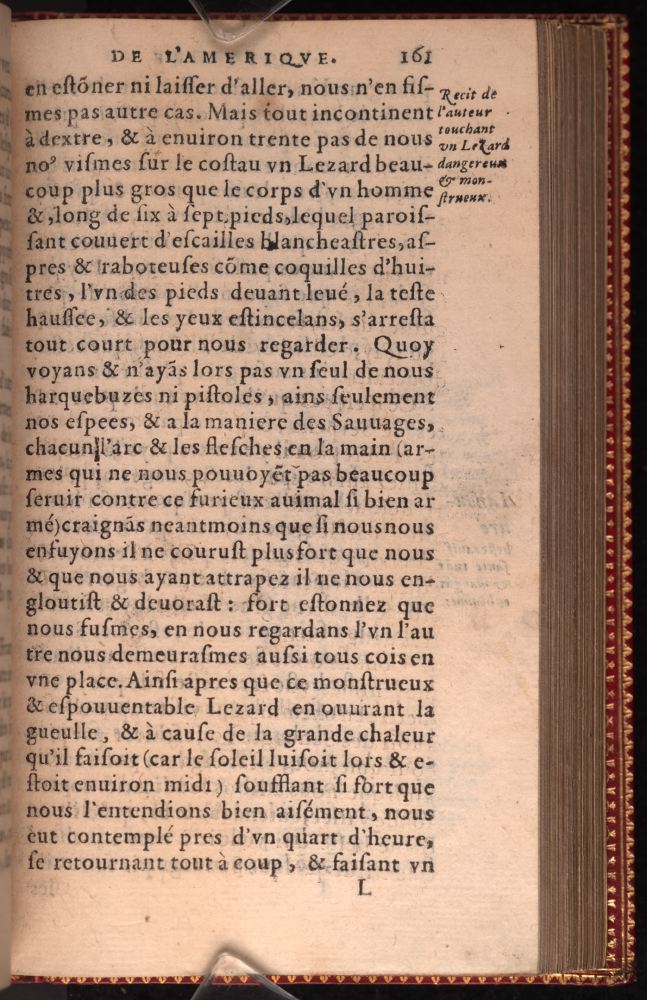 DE L'AMERIQVE. 161
en estõner ni laisser d'aller, nous n'en fis-
mes pas autre cas. Mais tout incontinent
à dextre, & à enuiron trente pas de nous
noꝰ vismes sur le costau vn Lezard beau-
coup plus gros que le corps d'vn homme
&, long de six à sept pieds, lequel parois-
sant couuert d'escailles blancheastres, as-
pres & raboteuses cõme coquilles d'hui-
tres, l'vn des pieds deuant leué, la teste
haussee, & les yeux estincelans, s'arresta
tout court pour nous regarder. Quoy
voyans & n'ayãs lors pas vn seul de nous
harquebuzes ni pistoles, ains seulement
nos espees, & a la maniere des Sauuages,
chacun l'arc & les flesches en la main (ar-
mes qui ne nous pouuoyẽt pas beaucoup
seruir contre ce furieux auimal si bien ar
mé) craignãs neantmoins que si nousnous
enfuyons il ne courust plus fort que nous
& que nous ayant attrapez il ne nous en-
gloutist & deuorast : fort estonnez que
nous fusmes, en nous regardans l'vn l'au
tre nous demeurasmes aussi tous cois en
vne place. Ainsi apres que ce monstrueux
& espouuentable Lezard en ouurant la
gueulle, & à cause de la grande chaleur
qu'il faisoit (car le soleil luisoit lors & e-
stoit enuiron midi) soufflant si fort que
nous l'entendions bien aisément, nous
eut contemplé pres d'vn quart d'heure,
se retournant tout à coup, & faisant vn
L
Recit de
l'auteur
touchant
vn Lezard
dangereux
& mon-
strueux.